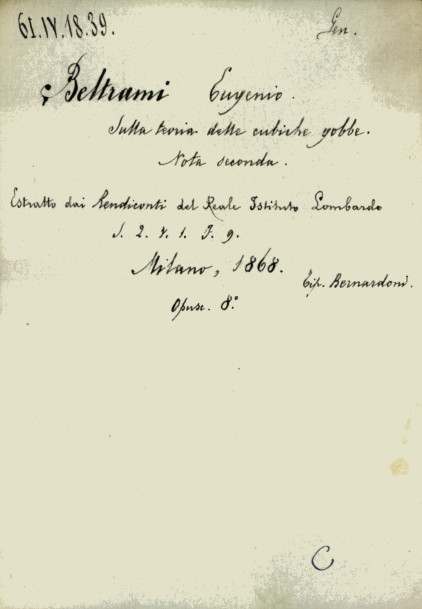 61.IV.18.39.
Gen.
Beltrami Eugenio.
Sulla teoria delle cubiche gobbe.
Nota seconda.
Estratto dai Rendiconti del Reale Istituto Lombardo
S. 2. v. 1. F. 9.
Milano, 1868.
Tip. Bernardoni.
Opusc. 8.°
C